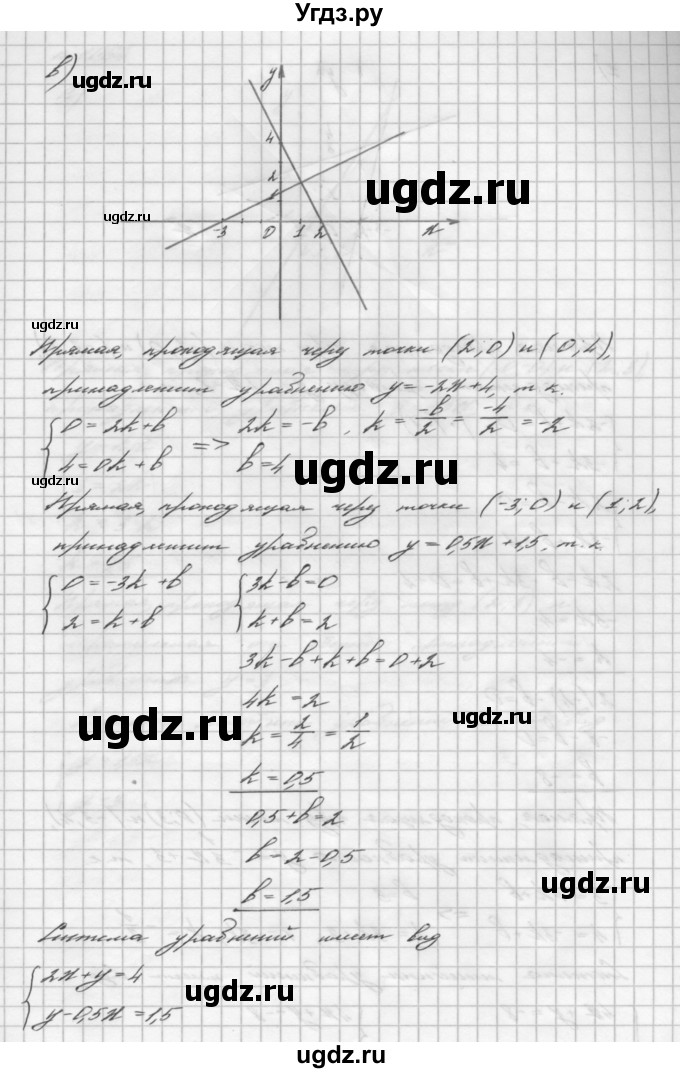 Угдз.ру
в)
ugdz.ru
y
4
2
1
ugdz.ru
ugdz.ru
-3 0 1 2 x
ugdz.ru
Прямая, проходящая через точки (2;0) и (0;4),
принадлежит уравнению y=-2x+4, т.к.
{0=2k+b => 2k=-b, k=-b/2=-4/2=-2
{4=0k+b b=4
ugdz.ru
ugdz.ru
Прямая, проходящая через точки (-3;0) и (1;2),
принадлежит уравнению y=0,5x+1,5, т.к.
{0=-3k+b {3k-b=0
{2=k+b {k+b=2
3k-b+k+b=0+2
4k=2
ugdz.ru
ugdz.ru
k=2/4=1/2
k=0,5
0,5+b=2
b=2-0,5
ugdz.ru
b=1,5
Система уравнений имеет вид
{2x+y=4
ugdz.ru
{y-0,5x=1,5
ugdz.ru